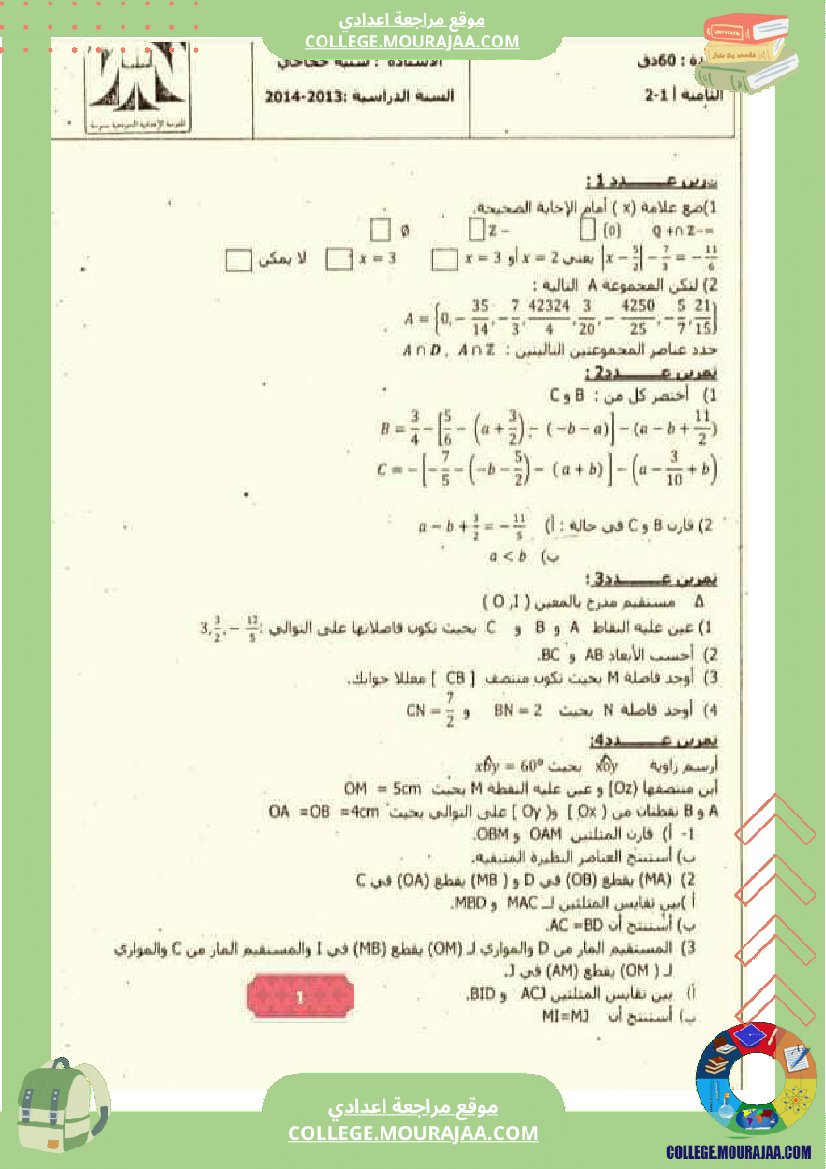 موقع مراجعة اعدادي
COLLEGE.MOURAJAA.COM
60دق
الأستاذة :
الثامنة أ 1-2
السنة الدراسية :2013-2014
تمرين عـــــدد 1 :
1)ضع علامة (x ) أمام الإجابة الصحيحة.
Q +∩ Z-= {0} □ Z - □ ∅ □
|x - 5/2| - 7/3 = - 11/6 يعني x = 2 أو x = 3 □ x = 3 □ لا يمكن □
2) لتكن المجموعة A التالية :
A = {0, - 35/14, - 7/3, 42324/4, 3/20, - 4250/25, - 5/7, 21/15}
حدد عناصر المجموعتين التاليتين : A ∩ Z , A ∩ D
تمرين عـــــدد2 :
1) أختصر كل من : B و C
B = 3/4 - [5/6 - (a + 3/2) - (-b - a)] - (a - b + 11/2)
C = - [- 7/5 - (-b - 5/2) - (a + b)] - (a - 3/10 + b)
2) قارن B و C في حالة : أ) a - b + 3/2 = - 11/5
ب) a < b
تمرين عـــــدد3 :
Δ مستقيم مدرج بالمعين ( O ,I )
1) عين عليه النقاط A و B و C بحيث تكون فاصلاتها على التوالي : 3, 3/2, - 12/5
2) أحسب الأبعاد AB و BC.
3) أوجد فاصلة M بحيث تكون منتصف [ CB ] معللا جوابك.
4) أوجد فاصلة N بحيث BN = 2 و CN = 7/2
تمرين عـــــدد4:
أرسم زاوية xôy بحيث xôy = 60°
أبن منتصفها [Oz) و عين عليه النقطة M بحيث OM = 5cm
A و B نقطتان من [ Ox ) و[ Oy ) على التوالي بحيث OA =OB =4cm
1- أ) قارن المثلثين OAM و OBM.
ب) أستنتج العناصر النظيرة المتبقية.
2) (MA) يقطع (OB) في D و ( MB ) يقطع (OA) في C
أ )بين تقايس المثلثين لـ MAC و MBD.
ب) أستنتج أن AC =BD.
3) المستقيم المار من D والموازي لـ (OM) يقطع (MB) في I والمستقيم المار من C والموازي
لـ ( OM) يقطع (AM) في J.
أ) بين تقايس المثلثين ACJ و BID.
ب) أستنتج أن MI=MJ
1
موقع مراجعة اعدادي
COLLEGE.MOURAJAA.COM
COLLEGE.MOURAJAA.COM